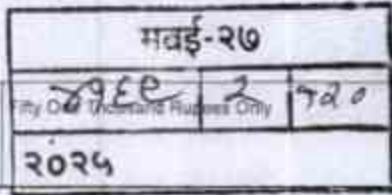 मवई-२७
४१६९ २ १२०
Fifty One Thousand Rupees Only
२०२५